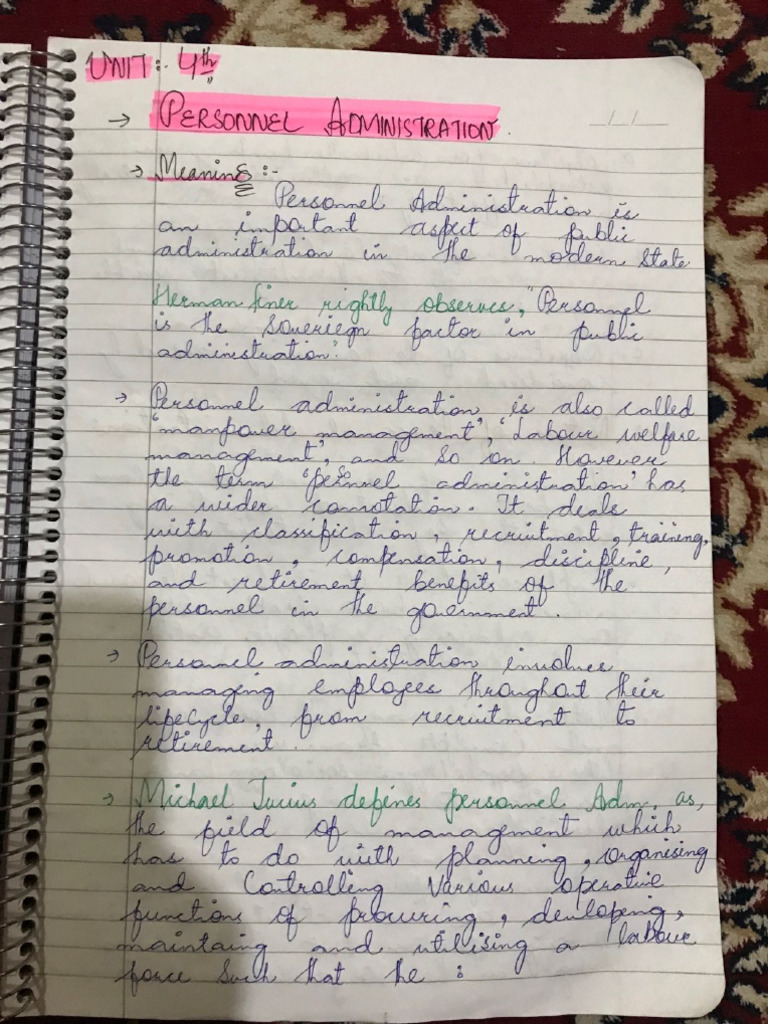 UNIT:- 4th
→ PERSONNEL ADMINISTRATION.
→ Meaning :-
Personnel Administration is
an important aspect of public
administration in the modern State
Herman finer rightly observes, "Personnel
is the sovereign factor in public
administration."
→ Personnel administration is also called
'manpower management', 'Labour welfare
management', and so on. However
the term 'personnel administration' has
a wider connotation. It deals
with classification, recruitment, training,
promotion, compensation, discipline,
and retirement benefits of the
personnel in the government.
→ Personnel administration involves
managing employees throughout their
lifecycle, from recruitment to
retirement.
→ Michael Jucius defines personnel Adm. as,
the field of management which
has to do with planning, organising
and Controlling Various operative
functions of procuring, developing,
maintaing and utilising a labour
force such that the :